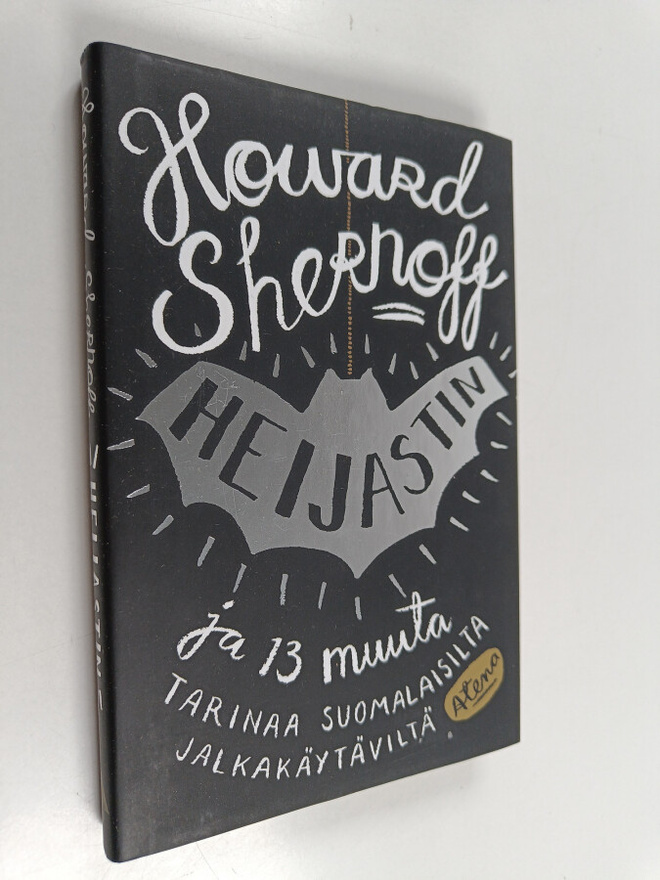 Howard
Shernoff
HEIJASTIN
ja 13 muuta
TARINAA SUOMALAISILTA
JALKAKÄYTÄVILTÄ
Atena
Howard Shernoff HEIJASTIN